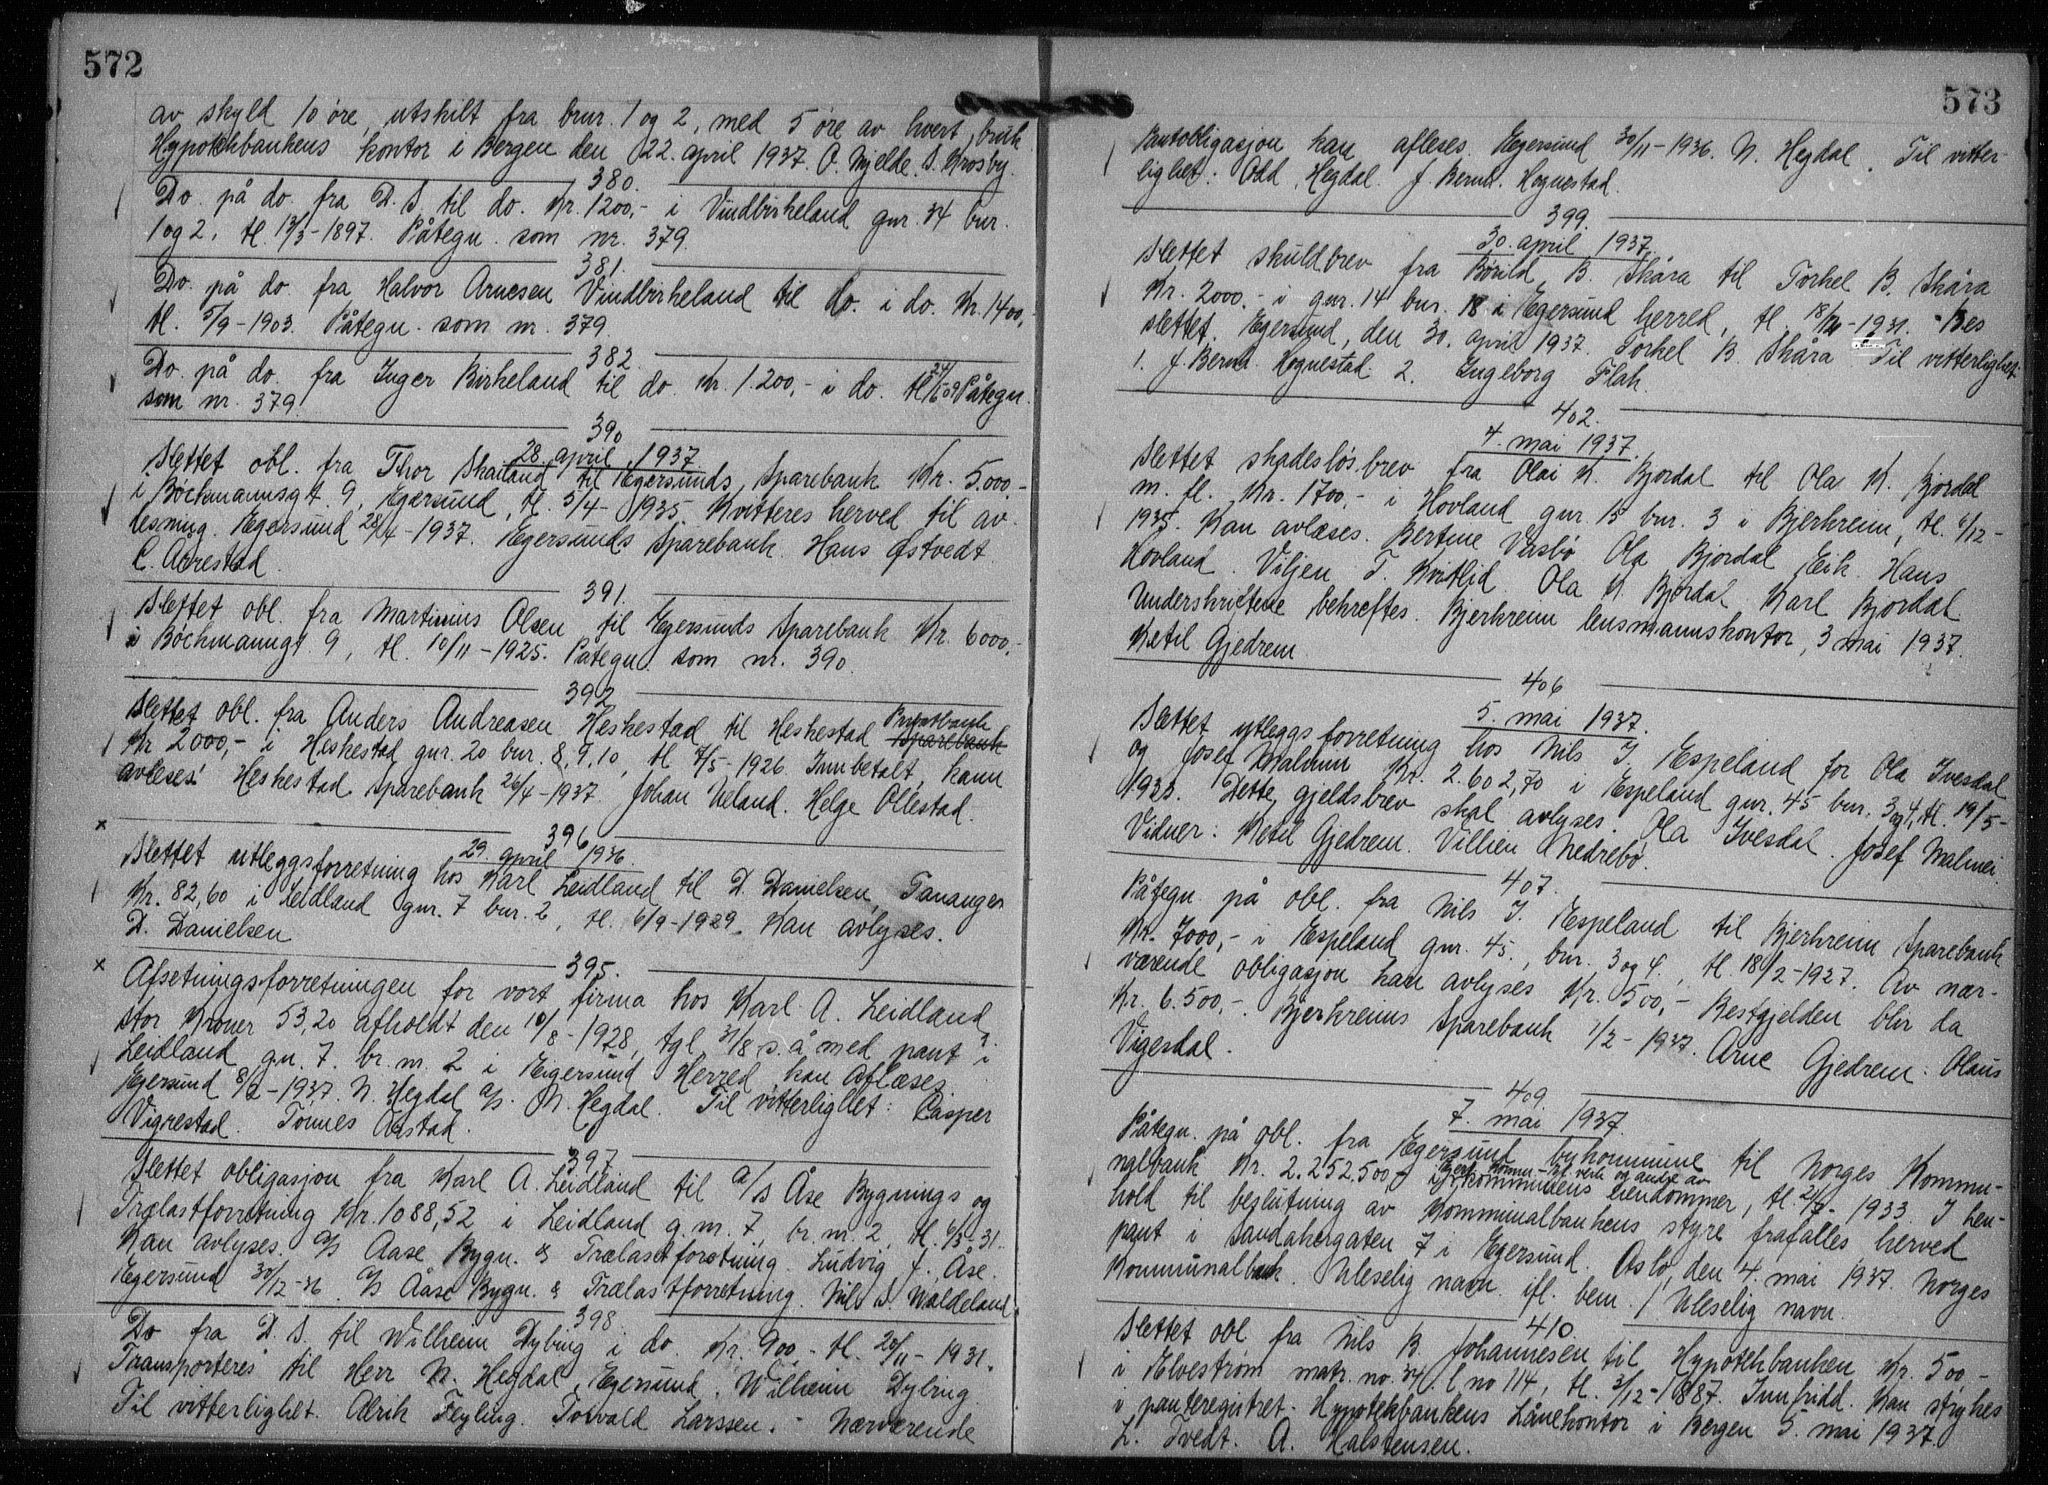 572
av skyld 10 øre, utskilt fra brnr. 1 og 2, med 5 øre av hvert bruk
Hypothekbankens kontor i Bergen den 22. april 1937. O. Mjelde. S. Krosby.
380.
Do. på do. fra D. S. til do. Kr. 1200,- i Vindbirkeland gnr. 34 bnr.
1 og 2, tl. 13/3-1897. Påtegn. som nr. 379.
381.
Do. på do. fra Halvor Arnesen Vindbirkeland til do. i do. Kr. 1400,-
tl. 5/9-1903. Påtegn. som nr. 379
382.
Do. på do. fra Inger Birkeland til do. Kr. 1.200,- i do. tl. Påtegn.
som nr. 379.
390
28 april 1937
Slettet obl. fra Thor Skailand til Egersunds Sparebank Kr. 5.000,-
i Bøckmannsgt. 9, Egersund, tl. 5/4-1935 Kvitteres herved til av-
lesning. Egersund 28/4-1937. Egersunds Sparebank. Hans Østvedt.
C. Aarrestad.
391.
Slettet obl. fra Martinius Olsen til Egersunds Sparebank Kr. 6000,-
i Bøckmanngt. 9, tl. 10/11-1925. Påtegn. som nr. 390.
392
Slettet obl. fra Anders Andreasen Heskestad til Heskestad Sparebank Privatbank
Kr 2000,- i Heskestad gnr. 20 bnr. 8, 9, 10, tl 7/5-1926 Innbetalt, kann
avleses. Heskestad Sparebank 26/4-1937. Johan Ueland. Helge Ollestad.
x
396
29. april 1936.
Slettet utleggsforretning hos Karl Leidland til D. Danielsen, Tananger
Kr. 82,60 i Leidland gnr. 7 bnr. 2, tl. 6/9-1929. Kan avlyses.
D. Danielsen
x
395.
Afsetningsforretningen for vort firma hos Karl A. Leidland
stor Kroner 53,20 afholdt den 10/8-1928, tgl 31/8 s.å. med pant i
Leidland gn. 7. br. nr. 2 i Eigersund Herred, kan aflæses
Egersund 8/2-1937. N. Hegdal A/S. N. Hegdal. Til vitterlighet: Casper
Vigrestad. Tønnes Aastad.
397
Slettet obligasjon fra Karl A. Leidland til A/S Åse Bygnings og
Trælastforretning Kr. 1088,52 i Leidland g.nr. 7, br. nr. 2, tl. 6/3-31.
Kan avlyses. A/S Aase Bygn. & Trælastforretning. Ludvig J. Åse.
Egersund 30/12-36. A/S Aase Bygn. & Trælastforretning. Nils S. Waldeland.
398
Do fra D. S. til Wilhelm Dybing i do. Kr. 900,- tl. 20/11-1931.
Transporteres til Herr N. Hegdal, Egersund. Wilhelm Dybing.
Til vitterlighet. Alrik Fleyling. Torvald Larssen. - Nærværende
573
Pantobligasjon kan afleses Egersund 30/11-1936. N. Hegdal. Til vitter-
lighet: Odd Hegdal. J. Bernh. Hognestad.
399.
30. april 1937.
Slettet skuldbrev fra Børild B. Skåra til Torkel B. Skåra
Kr. 2000.- i gnr. 14 bnr. 18 i Egersund herred, tl. -1931. - Bes
slettet. Egersund, den 30. april 1937. Torkel B. Skåra. Til vitterlighet:
1. J. Bernh. Hognestad. 2. Ingeborg Flah.
402.
4. mai 1937.
Slettet skadesløsbrev fra Olai K. Bjordal til Ola K. Bjordal
m. fl. Kr. 1700,- i Hovland gnr. 15 bnr. 3 i Bjerkreim, tl. 6/12-
1935. Kan avlæses. Bertine Vasbø Ola Bjordal Eik. Hans
Hovland. Viljen T. Kvitlid Ola K. Bjordal Karl Bjordal
Underskriftene bekreftes. Bjerkreim lensmannskontor, 3 mai 1937.
Ketil Gjedrem.
406
5. mai 1937.
Slettet utleggsforretning hos Nils J. Espeland for Ola Ivesdal
og Josef Malmin Kr. 2.602,70 i Espeland gnr. 45 bnr. 3 og 4, tl. 19/5-
1933. Dette gjeldsbrev skal avlyses. Ola Ivesdal. Josef Malmei.
Vidner: Ketil Gjedrem. Villien Nedrebø.
407.
Påtegn. på obl. fra Nils J. Espeland til Bjerkreim Sparebank
Kr. 7000,- i Espeland gnr. 45, bnr. 3 og 4, tl. 18/2-1927. Av nær-
værende obligasjon kan avlyses Kr. 500,- Restgjelden blir da
Kr. 6.500,-. Bjerkreims Sparebank 1/2-1937. Arne Gjedrem. Olaus
Vigesdal.
409
7. mai 1937.
Påtegn. på obl. fra Egersund bykommune til Norges Kommu-
nalbank Kr. 2.252.500,- i kommunens eiendommer, tl. 24/7-1933. I hen-
hold til beslutning av Kommunalbankens styre frafalles herved
pant i Sandakergaten 7 i Egersund. Oslo, den 4. mai 1937. Norges
Kommunalbank. Uleselig navn. ifl. bem. / Uleselig navn.
410.
Slettet obl fra Nils B. Johannesen til Hypothekbanken Kr. 500,-
i Elvestrøm matr. no. 34. l no 114, tl. 3/12-1887. Innfridd. Kan strykes
i panteregistret. Hypothekbankens Lånekontor i Bergen 5. mai 1937.
L. Tvedt. A. Halstensen.